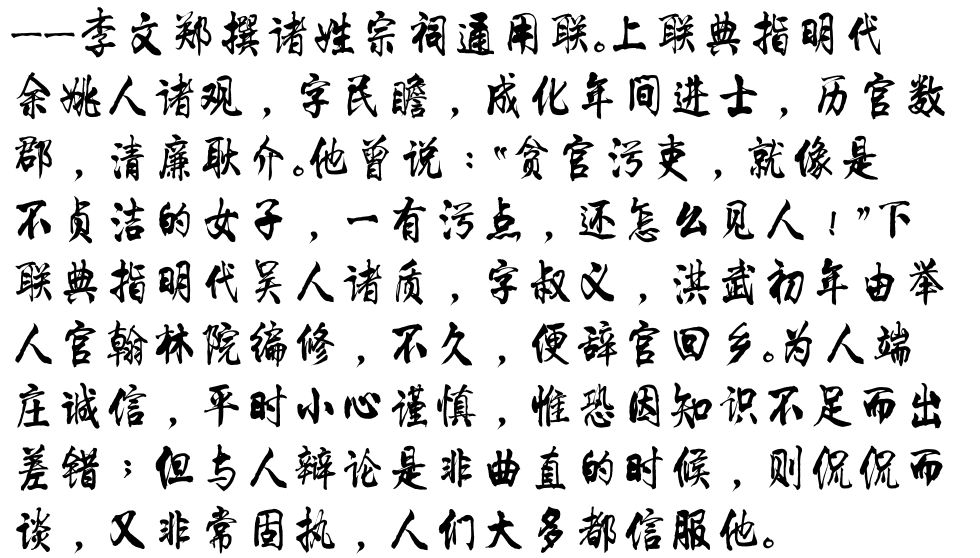 ——李文郑撰诸姓宗祠通用联。上联典指明代
余姚人诸观，字民瞻，成化年间进士，历官数
郡，清廉耿介。他曾说：“贪官污吏，就像是
不贞洁的女子，一有污点，还怎么见人！”下
联典指明代吴人诸质，字叔义，洪武初年由举
人官翰林院编修，不久，便辞官回乡。为人端
庄诚信，平时小心谨慎，惟恐因知识不足而出
差错；但与人辩论是非曲直的时候，则侃侃而
谈，又非常固执，人们大多都信服他。